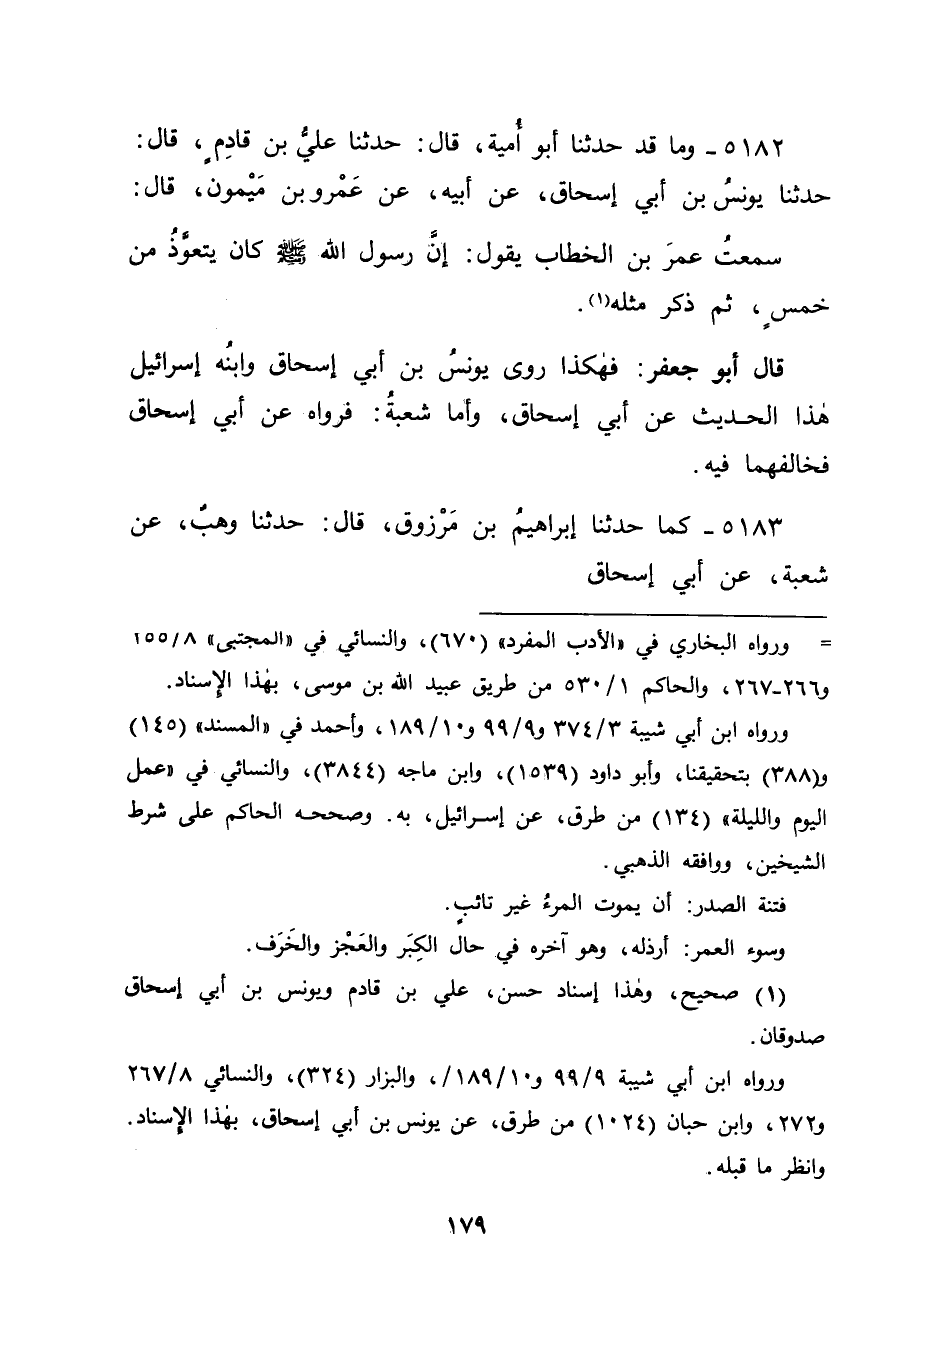 ٥١٨٢ ـ وما قد حدثنا أبو أُمية، قال: حدثنا عليُّ بن قادِمٍ، قال:
حدثنا يونسُ بن أبي إسحاق، عن أبيه، عن عَمْرو بن مَيْمون، قال:
سمعتُ عمرَ بن الخطاب يقول: إنَّ رسول الله ﷺ كان يتعوَّذُ من
خمسٍ، ثم ذكر مثله(١).
قال أبو جعفر: فهٰكذا روى يونسُ بن أبي إسحاق وابنُه إسرائيل
هٰذا الحديث عن أبي إسحاق، وأما شعبةُ: فرواه عن أبي إسحاق
فخالفهما فيه.
٥١٨٣ ـ كما حدثنا إبراهيمُ بن مَرْزوق، قال: حدثنا وهبٌ، عن
شعبة، عن أبي إسحاق
= ورواه البخاري في «الأدب المفرد» (٦٧٠)، والنسائي في «المجتبى» ١٥٥/٨
و٢٦٦-٢٦٧، والحاكم ٥٣٠/١ من طريق عبيد الله بن موسى، بهٰذا الإسناد.
ورواه ابن أبي شيبة ٣٧٤/٣ و٩٩/٩ و١٨٩/١٠، وأحمد في «المسند» (١٤٥)
و(٣٨٨) بتحقيقنا، وأبو داود (١٥٣٩)، وابن ماجه (٣٨٤٤)، والنسائي في «عمل
اليوم والليلة» (١٣٤) من طرق، عن إسرائيل، به. وصححه الحاكم على شرط
الشيخين، ووافقه الذهبي.
فتنة الصدر: أن يموت المرءُ غير تائبٍ.
وسوء العمر: أرذله، وهو آخره في حال الكِبَر والعَجْز والخَرَف.
(١) صحيح، وهٰذا إسناد حسن، علي بن قادم ويونس بن أبي إسحاق
صدوقان.
ورواه ابن أبي شيبة ٩٩/٩ و١٨٩/١٠/، والبزار (٣٢٤)، والنسائي ٢٦٧/٨
و٢٧٢، وابن حبان (١٠٢٤) من طرق، عن يونس بن أبي إسحاق، بهٰذا الإسناد.
وانظر ما قبله.
١٧٩